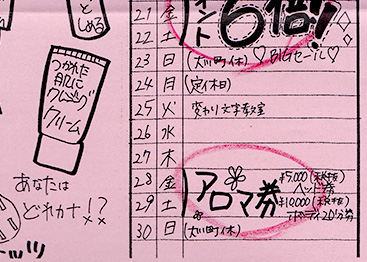 と
しめる
つかれた
肌に
クレンジング
クリーム
あなたは
どれカナ!?
ッツ
21 金
22 土
ント 6倍!!
23 日 (大川町休) ♡BIGセール♡
24 月 (定休日)
25 火 変わり文字教室
26 水
27 木
28 金
29 土
アロマ券
¥5,000(税抜)
¥10,000(税抜)
ボディ20分券
30 日 (大川町休)